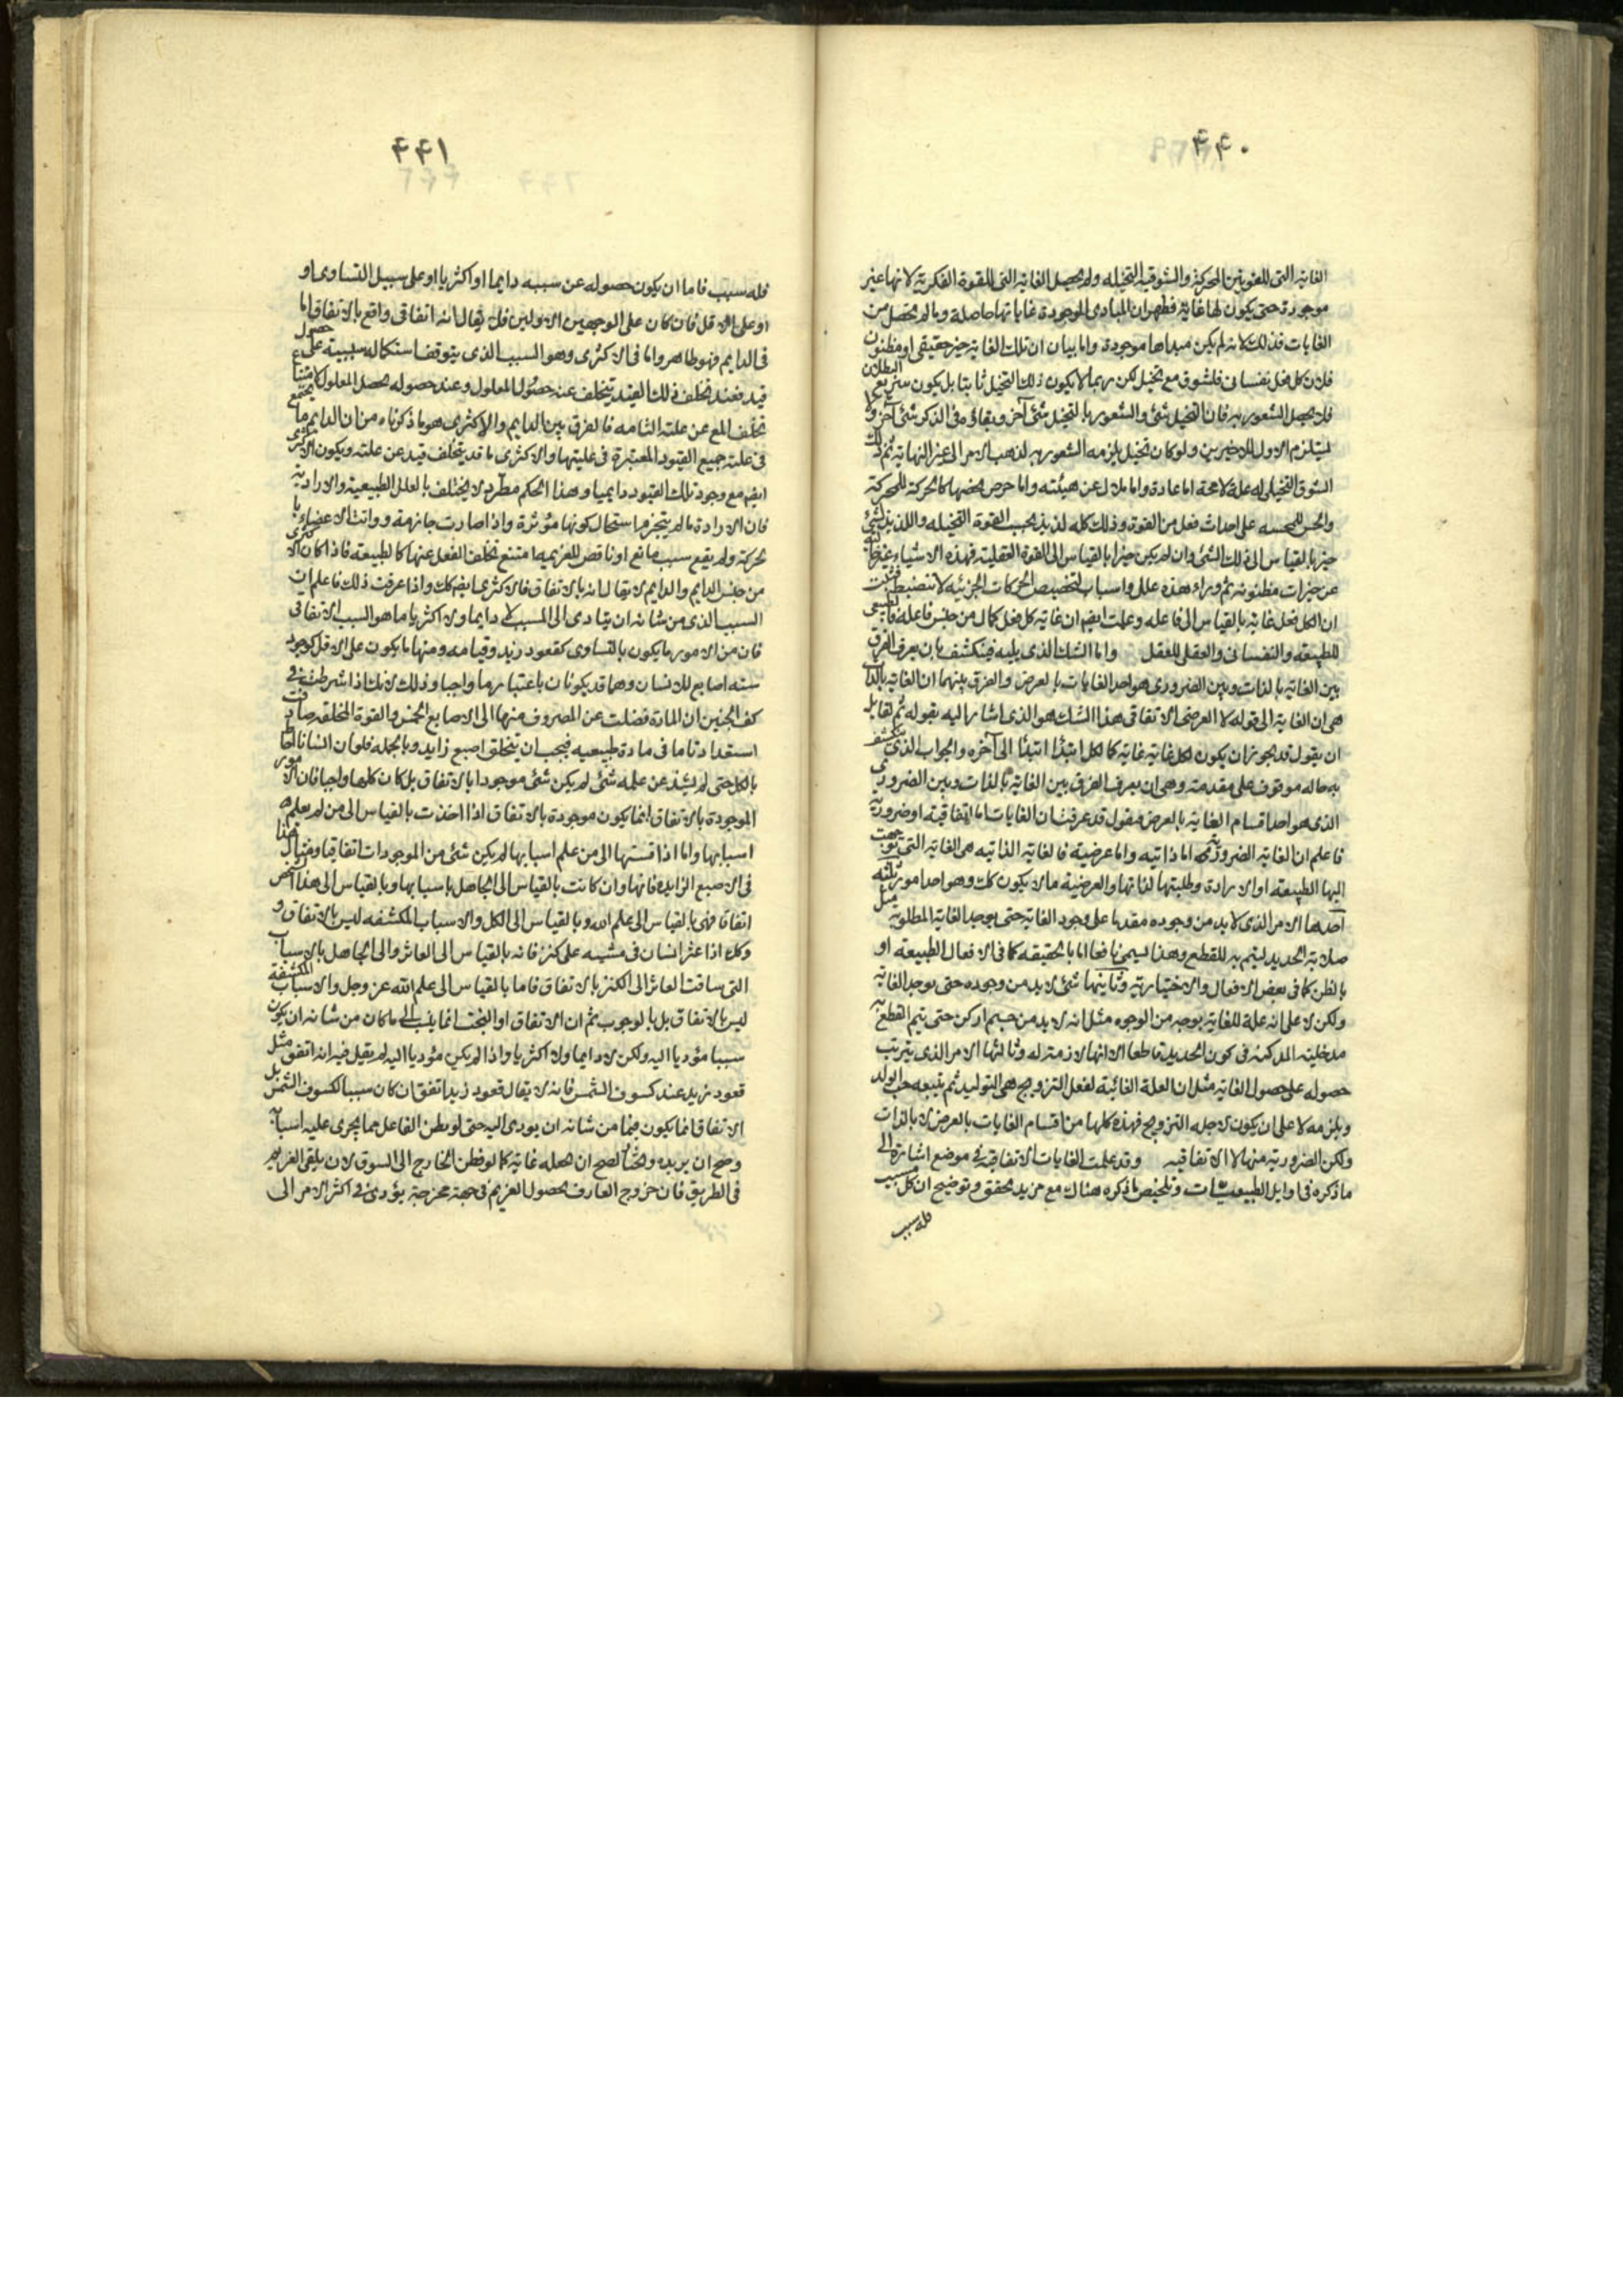 ۴۴۰
الغایة التی للقوتین المحرکة والشوقیة التخیلیه ولم یحصل الغایة التی للقوة الفکریة لانها غیر
موجودة حتی یکون لها غایة فظهر ان المبادی الموجودة غایاتها حاصلة وما لم یحصل من
الغایات فذلک لانه لم یکن مبداها موجودة واما بیان ان تلک الغایة خیر حقیقی او مظنون
فلان کل فعل نفسانی فلشوق مع تخیل لکن ربما لا یکون ذلک التخیل ثابتا بل یکون سریع البطلان
فلا یحصل الشعور به فان التخیل شئ والشعور بالتخیل شئ آخر وبقاؤه فی الذکر شئ آخر ولا
یستلزم الاول للاخیرین ولو کان تخیل یلزمه الشعور به لذهب الامر الی غیر النهایة ثم ذلک
الشوق التخیلی له علة لا محة اما عادة واما ملال عن هیئته واما حرص بعضها کالحرکة للمحرکة
والحس للمحسه علی احداث فعل من القوة وذلک کله لذیذ بحسب القوة التخیلیه واللذیذ لشئ
خیر بالقیاس الی ذلک الشئ وان لم یکن خیرا بالقیاس الی القوة العقلیة فهذه الاشیاء غیر خالیه
عن خیرات مظنونه ثم وراء هذه علل واسباب لتخصیص الحرکات الجزئیه لا تنضبط فثبت
ان لکل فعل غایة بالقیاس الی فاعله وعلمت ایضم ان غایة کل فعل کمال من جنس فاعله فالطبیعی
للطبیعه والنفسانی والعقلی للعقل واما الشک الذی یلیه فینکشف بان یعرف الفرق
بین الغایة بالذات وبین الضروری هو احد الغایات بالعرض والفرق بینهما ان الغایة بالذات
هی ان الغایة الی قوله لا العرضی الاتفاقی هذا الشک هو الذی اشار الیه بقوله ثم لقایل
ان یقول قد یجوز ان یکون لکل غایة غایة کما لکل ابتدا ابتدا الی آخره والجواب الذی ینکشف
به حاله موقوف علی مقدمته وهی ان یعرف الفرق بین الغایة بالذات وبین الضروری
الذی هو احد اقسام الغایة بالعرض فنقول قد عرفت ان الغایات اما اتفاقیة او ضروریة
فاعلم ان الغایة الضروریة اما ذاتیه واما عرضیة فالغایة الذاتیه هی الغایة التی توجهت
الیها الطبیعه او الارادة وطلبتها لذاتها والعرضیة ما لا یکون کلک وهو احد امور ثلثه
احدها الامر الذی لابد من وجوده مقدما علی وجود الغایة حتی یوجد الغایة المطلوبة مثل
صلابة الحدید لیتم به القطع وهذا لیسمی نافعا اما بالحقیقه کما فی الافعال الطبیعه او
بالظن کما فی بعض الافعال والاختیاریة وثانیها شئ لابد من وجوده حتی یوجد الغایة
ولکن لا علی انه علة للغایة بوجه من الوجوه مثل انه لابد من جسم ادکن حتی یتم القطع به
مدخلیته الدکنه فی کون الحدید قاطعا الا انها لازمة له وثالثها الامر الذی یترتب
حصوله علی حصول الغایة مثل ان العلة الغائیة لفعل التزویج هی التولید ثم یتبعه حب الولد
ویلزمه لا علی ان یکون لاجله التزویج فهذه کلها من اقسام الغایات بالعرض لا بالذات
ولکن الضروریة منها لا الاتفاقیه وقد علمت الغایات الاتفاقیة فی موضع اشارة الی
ما ذکره فی اوایل الطبیعیات وتلخیص ما ذکره هناک مع مزید تحقق وتوضیح ان کل مسبب
فله سبب
۴۴۱
فله سبب فاما ان یکون حصوله عن سببه دایما او اکثریا او علی سبیل التساوی او
او علی الاقل فان کان علی الوجهین الاولین فلا یقال انه اتفاقی واقع بالاتفاق اما
فی الدایم فهو ظاهر واما فی الاکثری وهو السبب الذی یتوقف استکماله سببیة علی حصول
قید فعند تخلف ذلک القید یتخلف عنه حصول المعلول وعند حصوله یحصل المعلول لامتناع
تخلف المع عن علته التامه فالفرق بین الدایم والاکثری هو ما ذکرناه من ان الدایم ما یجتمع
فی علته جمیع القیود المعتبرة فی علیتها والاکثری ما قد یتخلف قید عن علته ویکون الاکثری
ایضم مع وجود تلک القیود دایمیا وهذا الحکم مطرد لا یختلف بالعلل الطبیعیة والارادیة
فان الارادة ما لم یتجزم استحال کونها مؤثرة واذا صارت جازمة وواتت الاعضاء
تحرکه ولم یقع سبب مانع او ناقص للعزیمه امتنع تخلف الفعل عنها کالطبیعه فاذا کان الاکثری
من جنس الدایم والدایم لا یقال انه بالاتفاق فالاکثری ایضم کلک واذا عرفت ذلک فاعلم ان
السبب الذی من شانه ان یتادی الی المسبب لا دایما ولا اکثریا ما هو السبب الاتفاقی
فان من الامور ما یکون بالتساوی کقعود زید وقیامه ومنها ما یکون علی الاقل کوجود
سته اصابع للانسان وهما قد یکونان باعتبار ما واجبا وذلک لانک اذا شرطت فی
کف الجنین ان المادة فضلت عن المصروف منها الی الاصابع الخمس والقوة الخلاقة صادفت
استعدادا تاما فی مادة طبیعیه فیجب ان یتخلق اصبع زاید وبالجمله فلو ان انسانا احاط
بالکل حتی لم یشذ عن علمه شئ لم یکن شئ موجودا بالاتفاق بل کان کلها واجبا فان الامور
الموجودة بالاتفاق انما یکون موجودة بالاتفاق اذا اخذت بالقیاس الی من لم یعلم
اسبابها واما اذا قستها الی من علم اسبابها لم یکن شئ من الموجودات اتفاقیا ومثال هذا
فی الاصبع الزایدة فانها وان کانت بالقیاس الی الجاهل باسبابها وبالقیاس الی هذا الشخص
اتفاقا فهی بالقیاس الی علم الله وبالقیاس الی الکل والاسباب المکشفه لیس بالاتفاق و
وکذا اذا عثر انسان فی مشیه علی کنز فانه بالقیاس الی العاثر والی الجاهل بالاسباب
التی ساقت العاثر الی الکنز بالاتفاق فاما بالقیاس الی علم الله عز وجل والاسباب المکشفة
لیس بالاتفاق بل بالوجوب ثم ان الاتفاق او البخت انما ینسب الی ما کان من شانه ان یکون
سببا مؤدیا الیه ولکن لا دایما ولا اکثریا واذا لم یکن مؤدیا الیه لم یقل فیه انه اتفق مثل
قعود زید عند کسوف الشمس فانه لا یقال قعود زید اتفق ان کان سببا لکسوف الشمس بل
الاتفاق انما یکون فیما من شانه ان یودی الیه حتی لو فطن الفاعل مما یجری علیه اسبابه
وصح ان یریده ویختار لصح ان یجعله غایة کما لو فطن الخارج الی السوق لان یلقی الغریم
فی الطریق فان خروج العارف بحصول الغریم فی جهة مخرجه یؤدی فی اکثر الامر الی